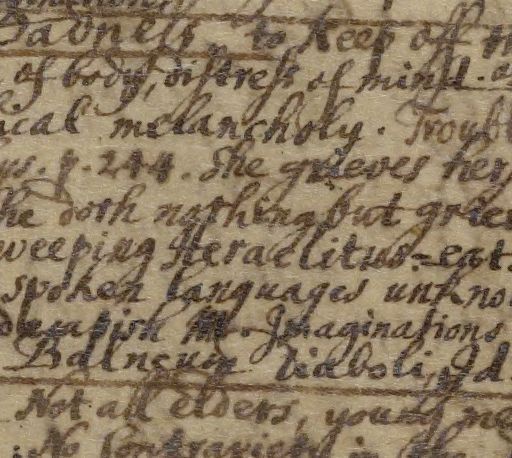 Sadness to keep off
of body, distress of mind.
ical melancholy. Troubl
p. 244. She grieves her
he doth nothing but grie
weeping Heraclitus
spoken languages unkno
Imaginations
Balneum diaboli,
Not all elders, young
No Contrariety in the